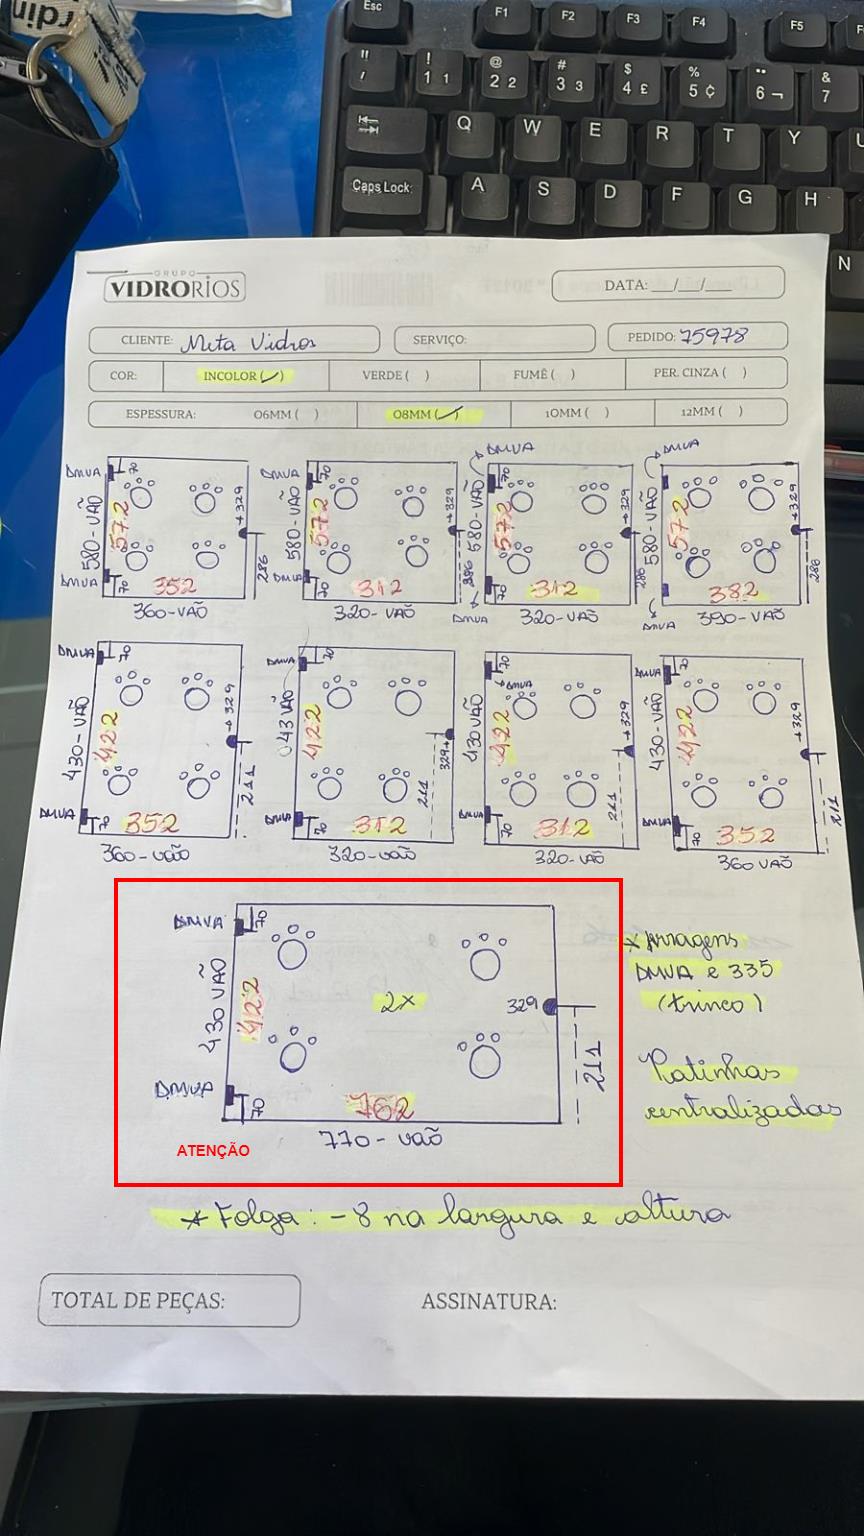 Esc F1 F2 F3 F4 F5
! 1 1 @ 2 2 # 3 3 $ 4 £ % 5 ¢ 6 ¬ & 7
Q W E R T Y
Caps Lock A S D F G H
N
GRUPO
VIDRORIOS
DATA: __/__/__
CLIENTE: Meta Vidros SERVIÇO: PEDIDO: 75978
COR: INCOLOR (✓) VERDE ( ) FUMÊ ( ) PER. CINZA ( )
ESPESSURA: 06MM ( ) 08MM (✓) 10MM ( ) 12MM ( )
DMVA 70 580-VÃO 572 DMVA 70 352 →329 286
360-VÃO
DMVA 70 580-VÃO 572 DMVA 70 312 →329 286
320-VÃO
DMVA 70 580-VÃO 572 DMVA 70 312 →329 286
320-VÃO
DMVA 580-VÃO 572 DMVA 382 →329 286
390-VÃO
DMVA 70 430-VÃO 422 DMVA 70 352 →329 211
360-vão
DMVA 70 43 VÃO 422 DMVA 70 312 329→ 211
320-vão
70 DMVA 430 VÃO 422 DMVA 70 312 →329 211
320-VÃO
DMVA 70 430-VÃO 422 DMVA 70 352 →329 211
360 VÃO
DMVA 70
430 VÃO 422 2x 329 211
DMVA 70 762
ATENÇÃO 770-vão
* ferragens
DMVA e 335
(trinco)
Patinhas
centralizadas
* Folga: -8 na largura e altura
TOTAL DE PEÇAS: ASSINATURA: